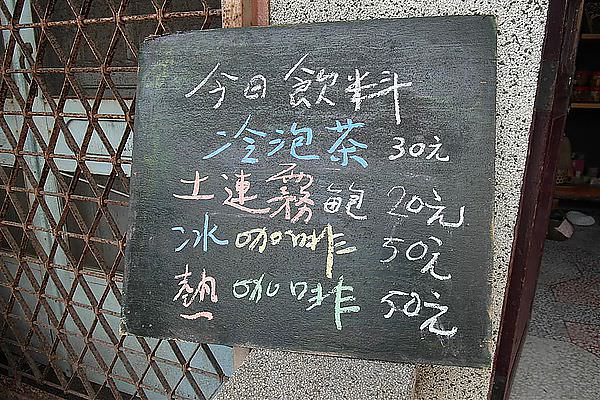 今日飲料
冷泡茶 30元
土連霧鮑 20元
冰咖啡 50元
熱咖啡 50元